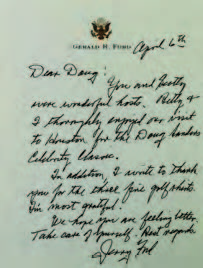 GERALD R. FORD
April 6th
Dear Doug:
You and
were wonderful hosts. Betty &
I thoroughly enjoyed our visit
to Houston for the Doug Sanders
Celebrity Classic.
In addition, I write to thank
you for the three fine golf shirts.
I'm most grateful.
We hope you are feeling better.
Take care of yourself. Best regards
Jerry Ford